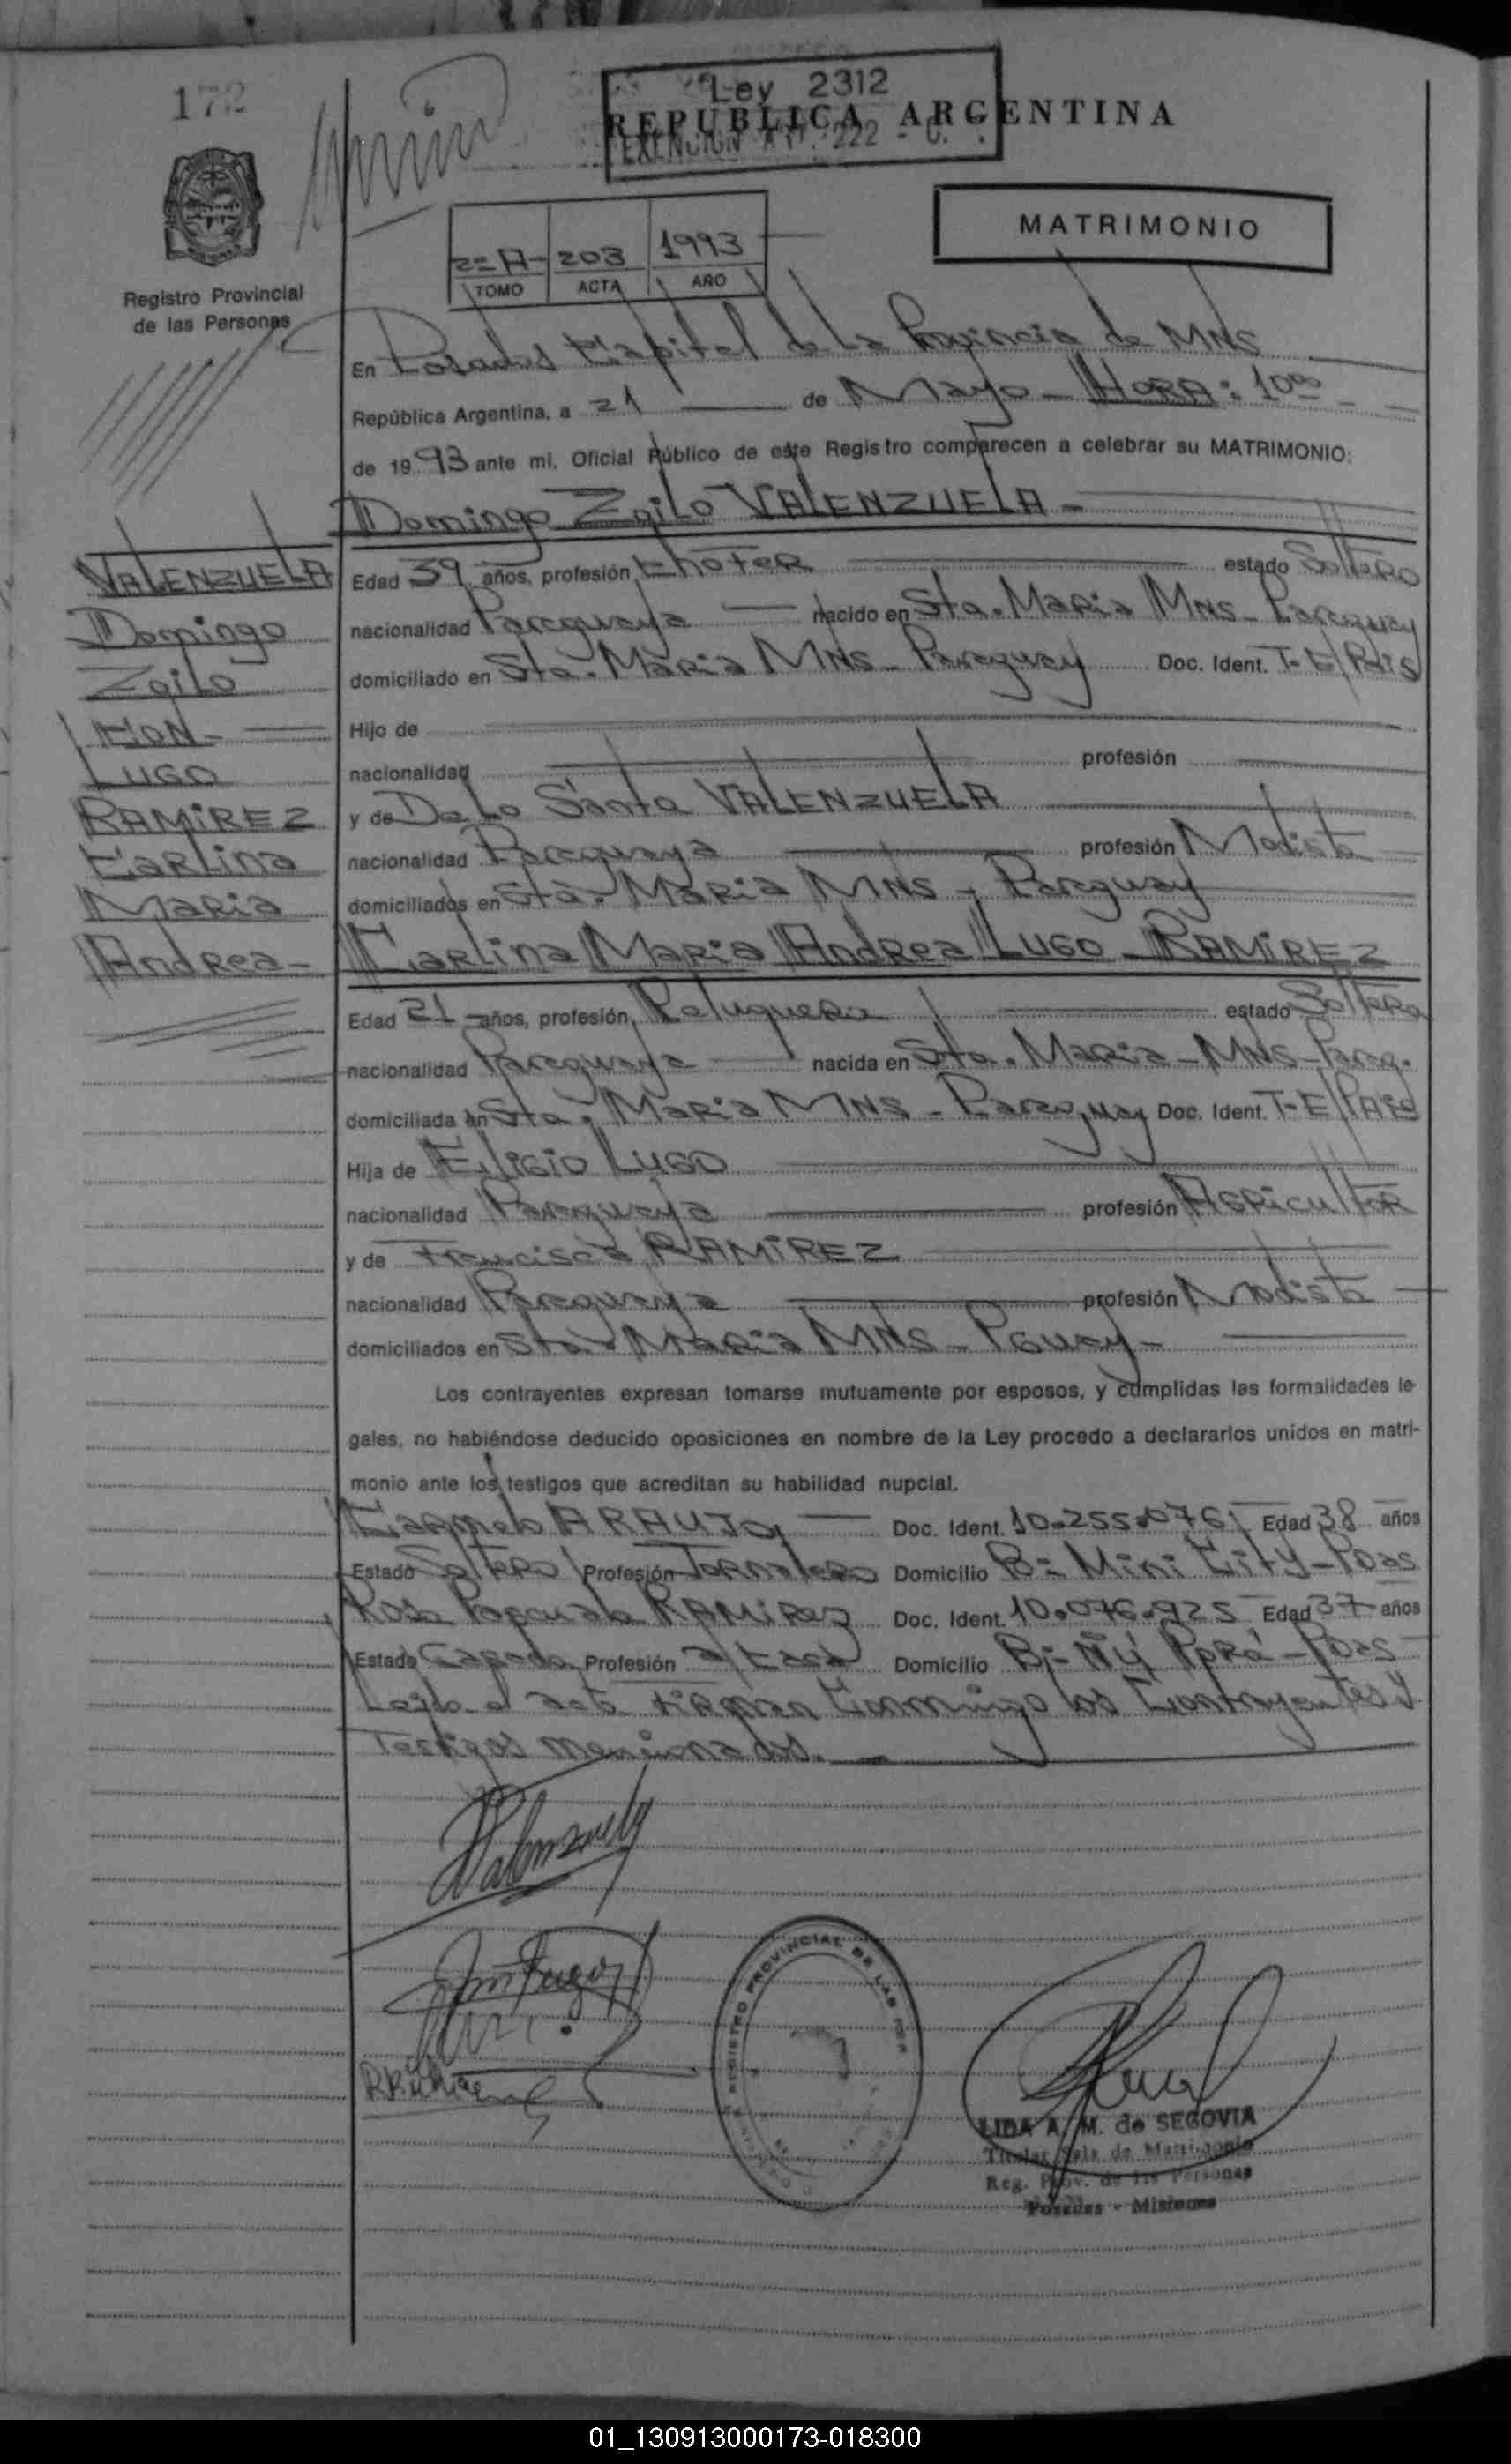 172
Ley 2312
REPUBLICA ARGENTINA
EXENCION ART. 222 - C.
MATRIMONIO
2º A- 203 1993
TOMO ACTA AÑO
Registro Provincial
de las Personas
En Posadas Capital de la Provincia de MNS
República Argentina, a 21 de Mayo - HORA: 10 00
de 1993 ante mi, Oficial Público de este Registro comparecen a celebrar su MATRIMONIO:
Domingo Zoilo VALENZUELA -
VALENZUELA
Domingo
Zoilo
CON -
LUGO
RAMIREZ
Carlina
Maria
Andrea -
Edad 39 años, profesión Chofer estado Soltero
nacionalidad Paraguaya nacido en Sta. Maria MNS - Paraguay
domiciliado en Sta. Maria MNS - Paraguay Doc. Ident. T-E/Pais
Hijo de
nacionalidad profesión
y de De Lo Santa VALENZUELA
nacionalidad Paraguaya profesión Modista
domiciliados en Sta. Maria MNS - Paraguay
Carlina Maria Andrea LUGO - RAMIREZ
Edad 21 años, profesión Peluquera estado Soltera
nacionalidad Paraguaya nacida en Sta. Maria - MNS - Parag.
domiciliada en Sta. Maria MNS - Paraguay Doc. Ident. T-E/Pais
Hija de Eligio LUGO
nacionalidad Paraguaya profesión Agricultor
y de Francisca RAMIREZ
nacionalidad Paraguaya profesión Modista
domiciliados en Sta. Maria MNS - Pguay -
Los contrayentes expresan tomarse mutuamente por esposos, y cumplidas las formalidades le-
gales, no habiéndose deducido oposiciones en nombre de la Ley procedo a declararlos unidos en matri-
monio ante los testigos que acreditan su habilidad nupcial.
Carmelo ARAUJO, Doc. Ident. 10.255.076 Edad 38 años
Estado Soltero Profesión Jornalero Domicilio Bº Mini City - Pdas
Rosa Pascuala RAMIREZ Doc. Ident. 10.076.925 Edad 37 años
Estado Casada Profesión a/casa Domicilio Bº Ñu Porá - Pdas
Leida el acta firman Conmigo los Contrayentes y
Testigos mencionados. -
Valenzuela
REGISTRO PROVINCIAL DE LAS PER
LIDA A. M. de SEGOVIA
Titular Sala de Matrimonio
Reg. Prov. de las Personas
Posadas - Misiones
01_130913000173-018300